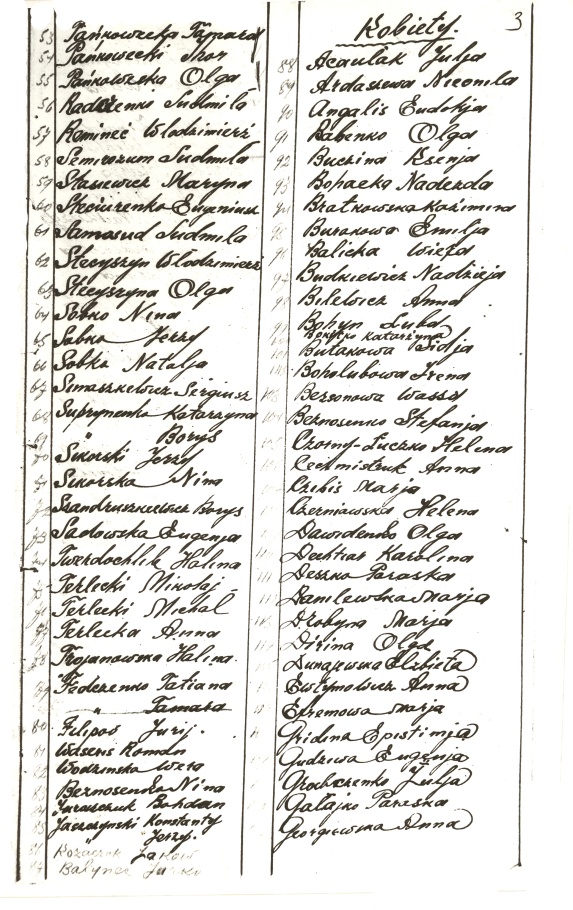 53 Pańkowzeka Tamara
54 Pańkowecki Iwor
55 Pańkowzeka Olga
56 Kadzenko Ludmila
57 Remineć Włodzimierz
58 Semirozum Ludmila
59 Stasiewicz Maryna
60 Steciurenko Eugeniusz
61 Samosud Ludmila
62 Stecyszyn Włodzimierz
63 Stecyszyna Olga
64 Sobko Nina
65 Sobko Jerzy
66 Sobko Natalja
67 Simaszkiewicz Sergiusz
68 Suprynenko Katarzyna
69 " Borys
70 Sikorski Jerzy
71 Sikorska Nina
72 Szandruszkiewicz Borys
73 Sadowska Eugenja
Twerdochlib Halina
Terlecki Mikołaj
Terlecki Michał
77 Terlecka Anna
78 Trojanowska Halina
79 Fedczenko Tatiana
" Tamara
80 Filipow Jurij.
81 Waseris Roman
82 Wodzinska Wera
83 Beznosenko Nina
84 Juraszczuk Bohdan
85 Jaczczynski Konstanty
" Jerzy.
86 Jakow
87 Balyneć
3
Kobiety.
88 Acaulak Julja
89 Ardaszewa Nieonila
90 Angalis Eudokja
91 Babenko Olga
92 Buckina Ksenja
93 Bohacka Nadezda
94 Bratkowska Kazimira
95 Burakowa Emilja
96 Balicka Wiera
97 Budkiewicz Nadzieja
98 Bilewicz Anna
99 Bohyn Luba
Katarzyna
101 Butakowa Lidja
Boholubowa Irena
Bezsonowa Wassa
Beznosenko Stefanja
Czorny-Łuczko Helena
Cechmistruk Anna
Czebis Marja
Czerniawska Helena
Dawidenko Olga
Dechtiar Karolina
Deszko Paraska
Danilewska Marja
Drobyna Marja
Dirina Olga
Dunajewska Elżbieta
Ewtymowicz Anna
Efremowa Marja
Gridina Epistimja
Gudziwa Eugenja
Grabczenko Julja
Galajko Paraska
Georgiewska Anna